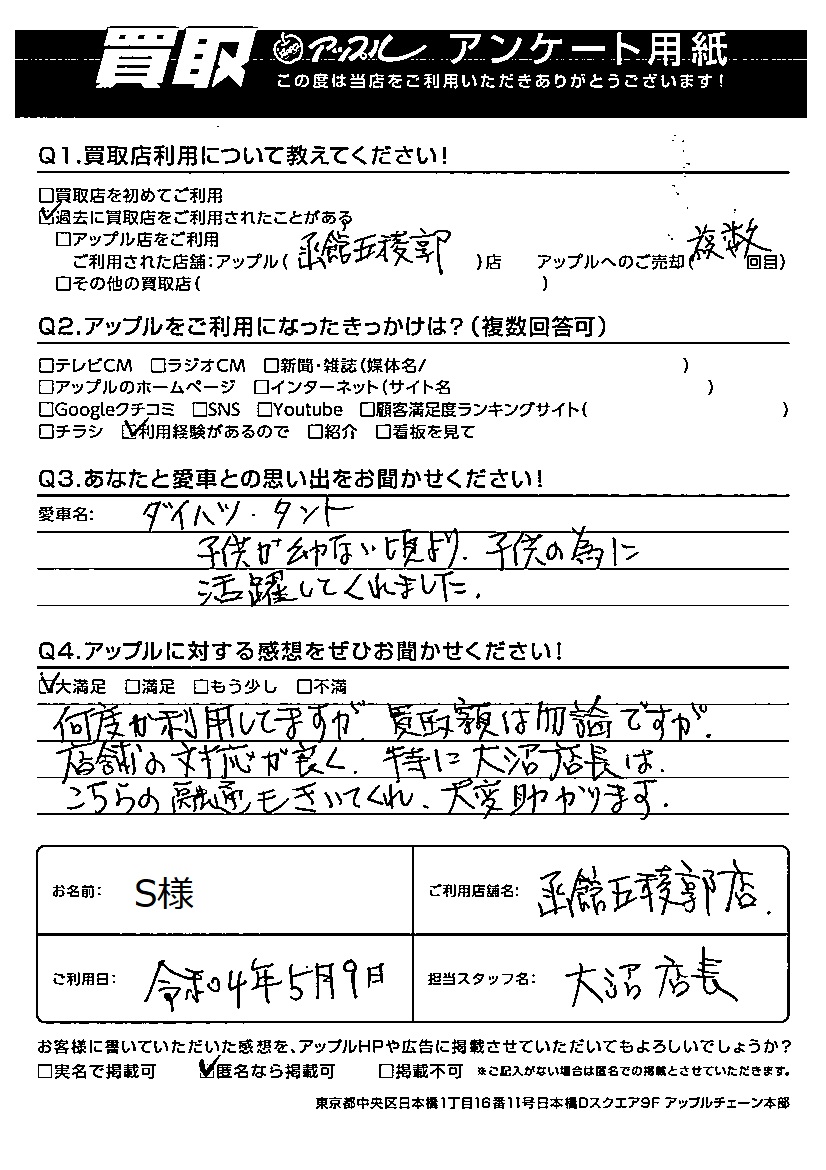 買取 アップル アンケート用紙
この度は当店をご利用いただきありがとうございます!
Q1.買取店利用について教えてください!
□買取店を初めてご利用
☑過去に買取店をご利用されたことがある
□アップル店をご利用
ご利用された店舗:アップル(函館五稜郭)店 アップルへのご売却(複数回目)
□その他の買取店( )
Q2.アップルをご利用になったきっかけは?(複数回答可)
□テレビCM □ラジオCM □新聞・雑誌(媒体名/ )
□アップルのホームページ □インターネット(サイト名 )
□Googleクチコミ □SNS □Youtube □顧客満足度ランキングサイト( )
□チラシ ☑利用経験があるので □紹介 □看板を見て
Q3.あなたと愛車との思い出をお聞かせください!
愛車名: ダイハツ・タント
子供が幼ない頃より、子供の為に
活躍してくれました。
Q4.アップルに対する感想をぜひお聞かせください!
☑大満足 □満足 □もう少し □不満
何度か利用してますが、買取額は勿論ですが、
店舗の対応が良く、特に大沼店長は、
こちらの融通もきいてくれ、大変助かります。
お名前: S様 ご利用店舗名: 函館五稜郭店.
ご利用日: 令和04年5月9日 担当スタッフ名: 大沼店長
お客様に書いていただいた感想を、アップルHPや広告に掲載させていただいてもよろしいでしょうか?
□実名で掲載可 ☑匿名なら掲載可 □掲載不可 ※ご記入がない場合は匿名での掲載とさせていただきます。
東京都中央区日本橋1丁目16番11号日本橋Dスクエア9F アップルチェーン本部